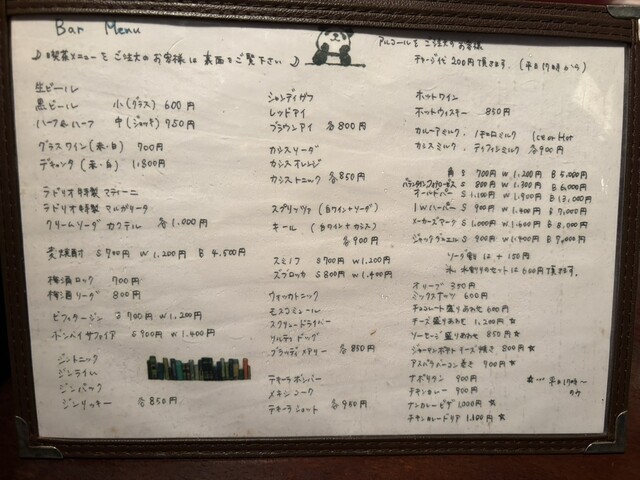 Bar Menu
♪喫茶メニューをご注文のお客様は裏面をご覧下さい♪
アルコールをご注文のお客様
チャージ代200円頂きます。(平日17時から)
生ビール
黒ビール 小(グラス) 600円
ハーフ&ハーフ 中(ジョッキ) 750円
グラスワイン(赤・白) 700円
デキャンタ(赤・白) 1,800円
ラドリオ特製 マティーニ
ラドリオ特製 マルガリータ
クリームソーダ カクテル 各1,000円
麦焼酎 S 700円 W 1,200円 B 4,500円
梅酒ロック 700円
梅酒ソーダ 800円
ビフィータージン S 700円 W 1,200円
ボンベイサファイア S 900円 W 1,400円
ジントニック
ジンライム
ジンバック
ジンリッキー 各850円
シャンディガフ
レッドアイ
ブラウンアイ 各800円
カシスソーダ
カシスオレンジ
カシストニック 各850円
スプリッツァ (白ワイン+ソーダ)
キール (白ワイン+カシス)
各900円
スミノフ S 700円 W 1,200円
ズブロッカ S 800円 W 1,400円
ウォッカトニック
モスコミュール
スクリュードライバー
ソルティドッグ
ブラッディメアリー 各850円
テキーラボンバー
メキシコーク
テキーラショット 各950円
ホットワイン
ホットウィスキー 850円
カルーアミルク、イチゴミルク Ice or Hot
カシスミルク、ティフィンミルク 各900円
角 S 700円 W 1,200円 B 5,000円
バランタインファイネスト S 800円 W 1,300円 B 6,000円
オールドパー S 1,100円 W 1,900円 B 13,000円
I.W.ハーパー S 900円 W 1,400円 B 7,000円
メーカーズマーク S 1,000円 W 1,600円 B 8,000円
ジャックダニエル S 900円 W 1,400円 B 7,000円
ソーダ割は+150円
氷、水割りのセットは600円頂きます。
オリーブ 350円
ミックスナッツ 600円
チョコレート盛りあわせ 600円
チーズ盛りあわせ 1,200円 ☆
ソーセージ盛りあわせ 850円 ☆
ジャーマンポテトチーズ焼き 800円 ☆
アスパラベーコン巻き 700円 ☆
ナポリタン 900円
☆… 平日17時〜
チキンカレー 900円
ナンカレーピザ 1,000円 ☆
チキンカレードリア 1,100円 ☆